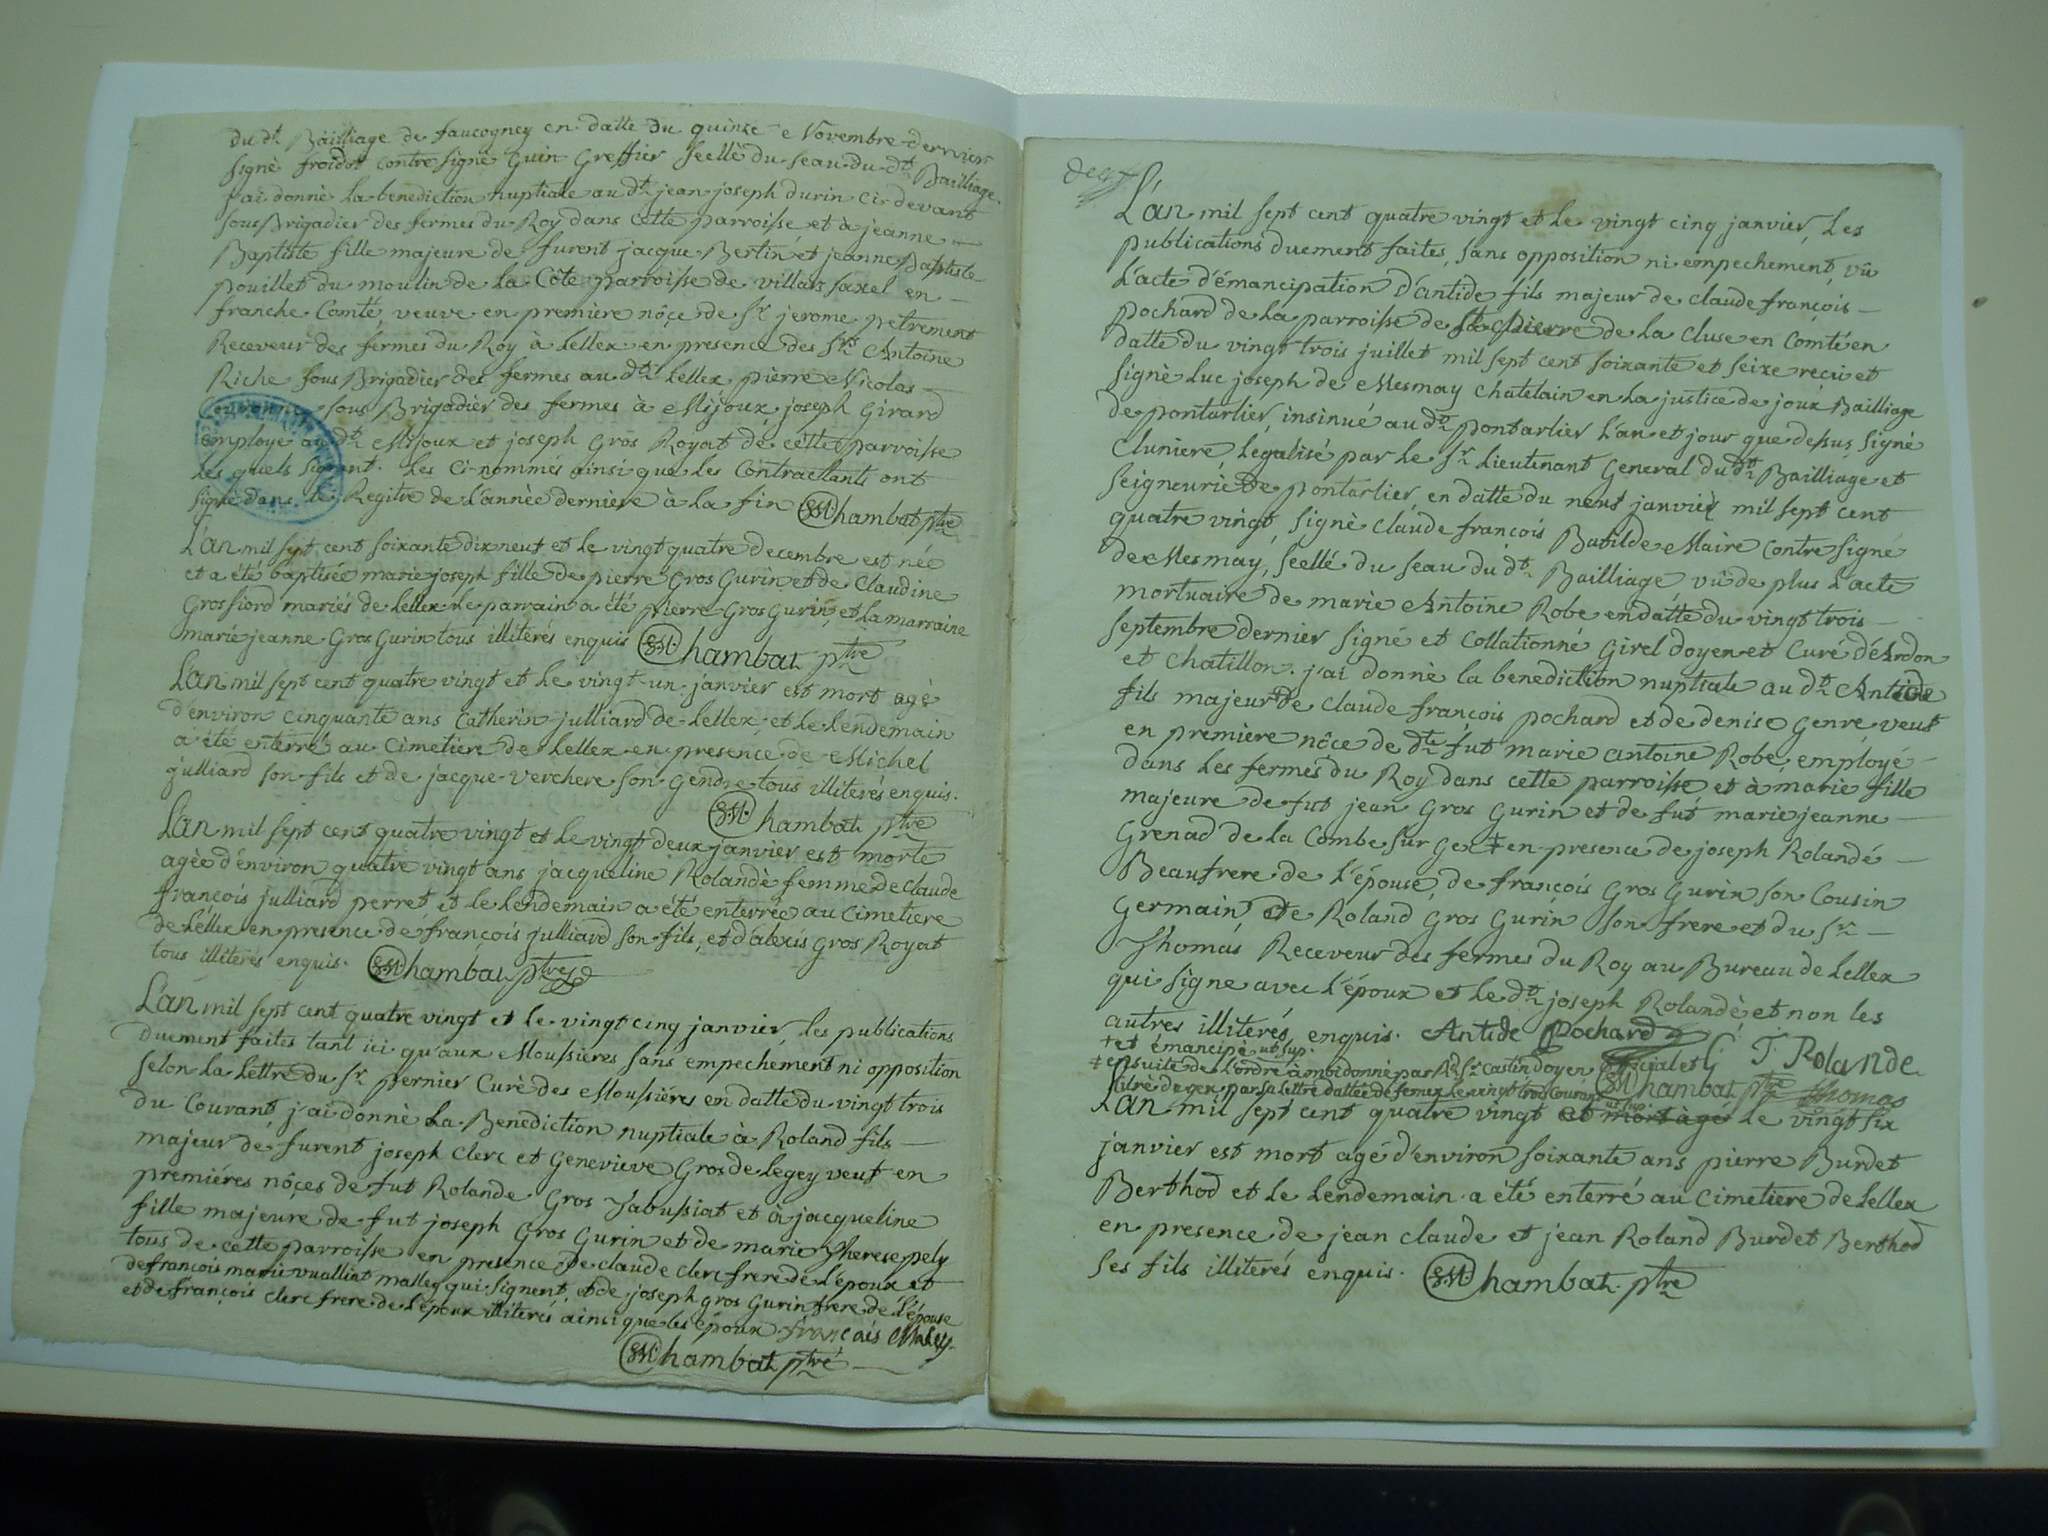 du dt. Bailliage de faucogney en datte du quinze Novembre dernier
signè froidot contre signè Guin Greffier scellè du seau du dt. Bailliage
j'ai donnè la benediction nuptiale au dt. jean joseph durin ci-devant
sous Brigadier des fermes du Roy dans cette parroisse et à jeanne
Baptiste fille majeure de furent jacque Bertin et jeanne Baptiste
pouillet du moulin de la Côte parroisse de villars saxel en
franche Comté, veuve en premiere nôce de Sr. jerome petrement
Receveur des fermes du Roy à Lellex en presence des Srs. Antoine
Riche sous Brigadier des fermes au dt. Lellex, pierre Nicolas
sous Brigadier des fermes à Mijoux joseph Girard
employé au dt. Mijoux et joseph Gros Royat de cette parroisse
les quels signent. les ci-nommés ainsi que les Contractants ont
signé dans le Regitre de l'annèe derniere à la fin Chambat ptre
L'an mil sept cent soixante dix neuf et le vingt quatre decembre est née
et a été baptisée marie joseph fille de pierre Gros Gurin et de Claudine
Grosfiord mariés de Lellex le parrain a été pierre Gros Gurin, et la marraine
marie jeanne Gros Gurin tous illiterés enquis Chambat ptre
L'an mil sept cent quatre vingt et le vingt-un janvier est mort agè
d'environ cinquante ans Catherin julliard de Lellex, et le lendemain
a été enterré au Cimetiere de Lellex en presence de Michel
julliard son fils et de jacque verchere son Gendre tous illiterés enquis.
Chambat ptre
L'an mil sept cent quatre vingt et le vingt deux janvier est morte
agèe d'environ quatre vingt ans jacqueline Rolandè femme de Claude
françois julliard perret et le lendemain a été enterrée au Cimetiere
de Lellex en presence de françois julliard son fils, et d'alexis Gros Royat
tous illitérés enquis. Chambat ptre
L'an mil sept cent quatre vingt et le vingt cinq janvier, les publications
duement faites tant ici qu'aux Moussieres sans empechement ni opposition
selon la lettre du Sr. pernier Curè des Moussiéres en datte du vingt trois
du Courant, j'ai donnè la Benediction nuptiale à Roland fils
majeur de furent joseph Clerc et Genevieve Gros de Legey veuf en
premiéres nôçes de fut Rolande Gros Jabussiat et à jacqueline
fille majeure de fut joseph Gros Gurin et de marie Therese pely
tous de cette parroisse en presence de claude clerc frere de l'époux et
de françois marie vualliat malley qui signent, et de joseph Gros Gurin frere de l'épouse
et de françois clerc frere de l'époux illiterés ainsi que les époux. françois Maley
Chambat ptre
L'an mil sept cent quatre vingt et le vingt cinq janvier, les
publications duement faites, sans opposition ni empechement, vû
L'acte d'émancipation d'antide fils majeur de claude françois
pochard de la parroisse de St. pierre de la Cluse en Comté en
datte du vingt trois juillet mil sept cent soixante et seize recu et
signè Luc joseph de Mesmay Chatelain en la justice de joux Bailliage
de pontarlier, insinué au dt. pontarlier L'an et jour que dessus, signè
Cluniere, legalisé par le Sr. Lieutenant General du dt. Bailliage et
seigneurie de pontarlier en datte du neuf janvier mil sept cent
quatre vingt, signè claude françois Batilde Maire contre signé
de Mesmay, scellé du seau du dt. Bailliage vû de plus L'acte
mortuaire de marie Antoine Robe en datte du vingt trois
septembre dernier signé et Collationné Girel doyen et Curé d'Ardon
et Chatillon. j'ai donnè la benediction nuptiale au dt. Antide
fils majeur de claude françois pochard et de denise Genre veuf
en premiere nôce de dte. fut marie antoine Robe, employé
dans les fermes du Roy dans cette parroisse et à marie fille
majeure de fut jean Gros Gurin et de fut marie jeanne
Grenad de la Combe sur Gex ‡ en presence de joseph Rolandé
Beaufrere de l'épouse, de françois Gros Gurin son Cousin
Germain, de Roland Gros Gurin son frere et du Sr.
Thomas Receveur des fermes du Roy au Bureau de Lellex
qui signe avec l'époux et le dt. joseph Rolandè et non les
autres illiterés enquis. Antide Pochard J. Rolande
+ et émancipè ut sup.
‡ ensuite de l'ordre à moi donné par Rd Sr. Castin doyen official et
Curè de gex par sa lettre dattée de fernex le vingt trois Courant ut sup. Chambat ptre Thomas
L'an mil sept cent quatre vingt et mort àgé le vingt six
janvier est mort agé d'environ soixante ans pierre Burdet
Berthod et le lendemain a été enterré au Cimetiere de Lellex
en presence de jean claude et jean Roland Burdet Berthod
ses fils illiterés enquis. Chambat ptre